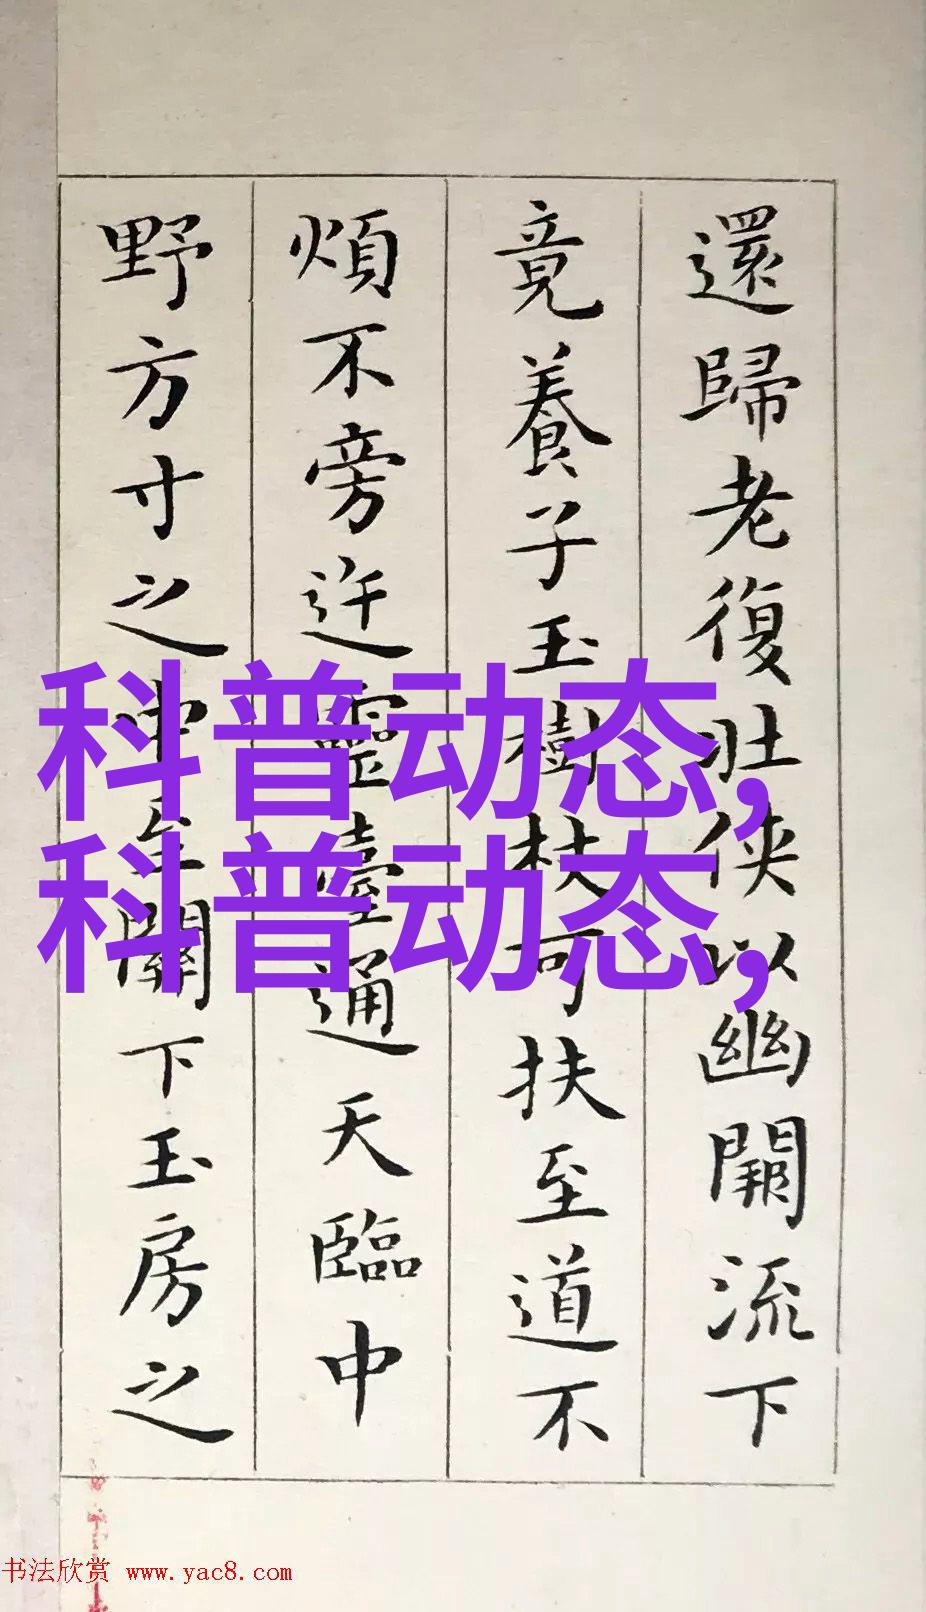 還歸老復壯俠以幽闕流下
竟養子玉樹杖可扶至道不
煩不旁迕靈臺通天臨中
野方寸之中至關下玉房之
科普动态,
科普动态,
书法欣赏 www.yac8.com